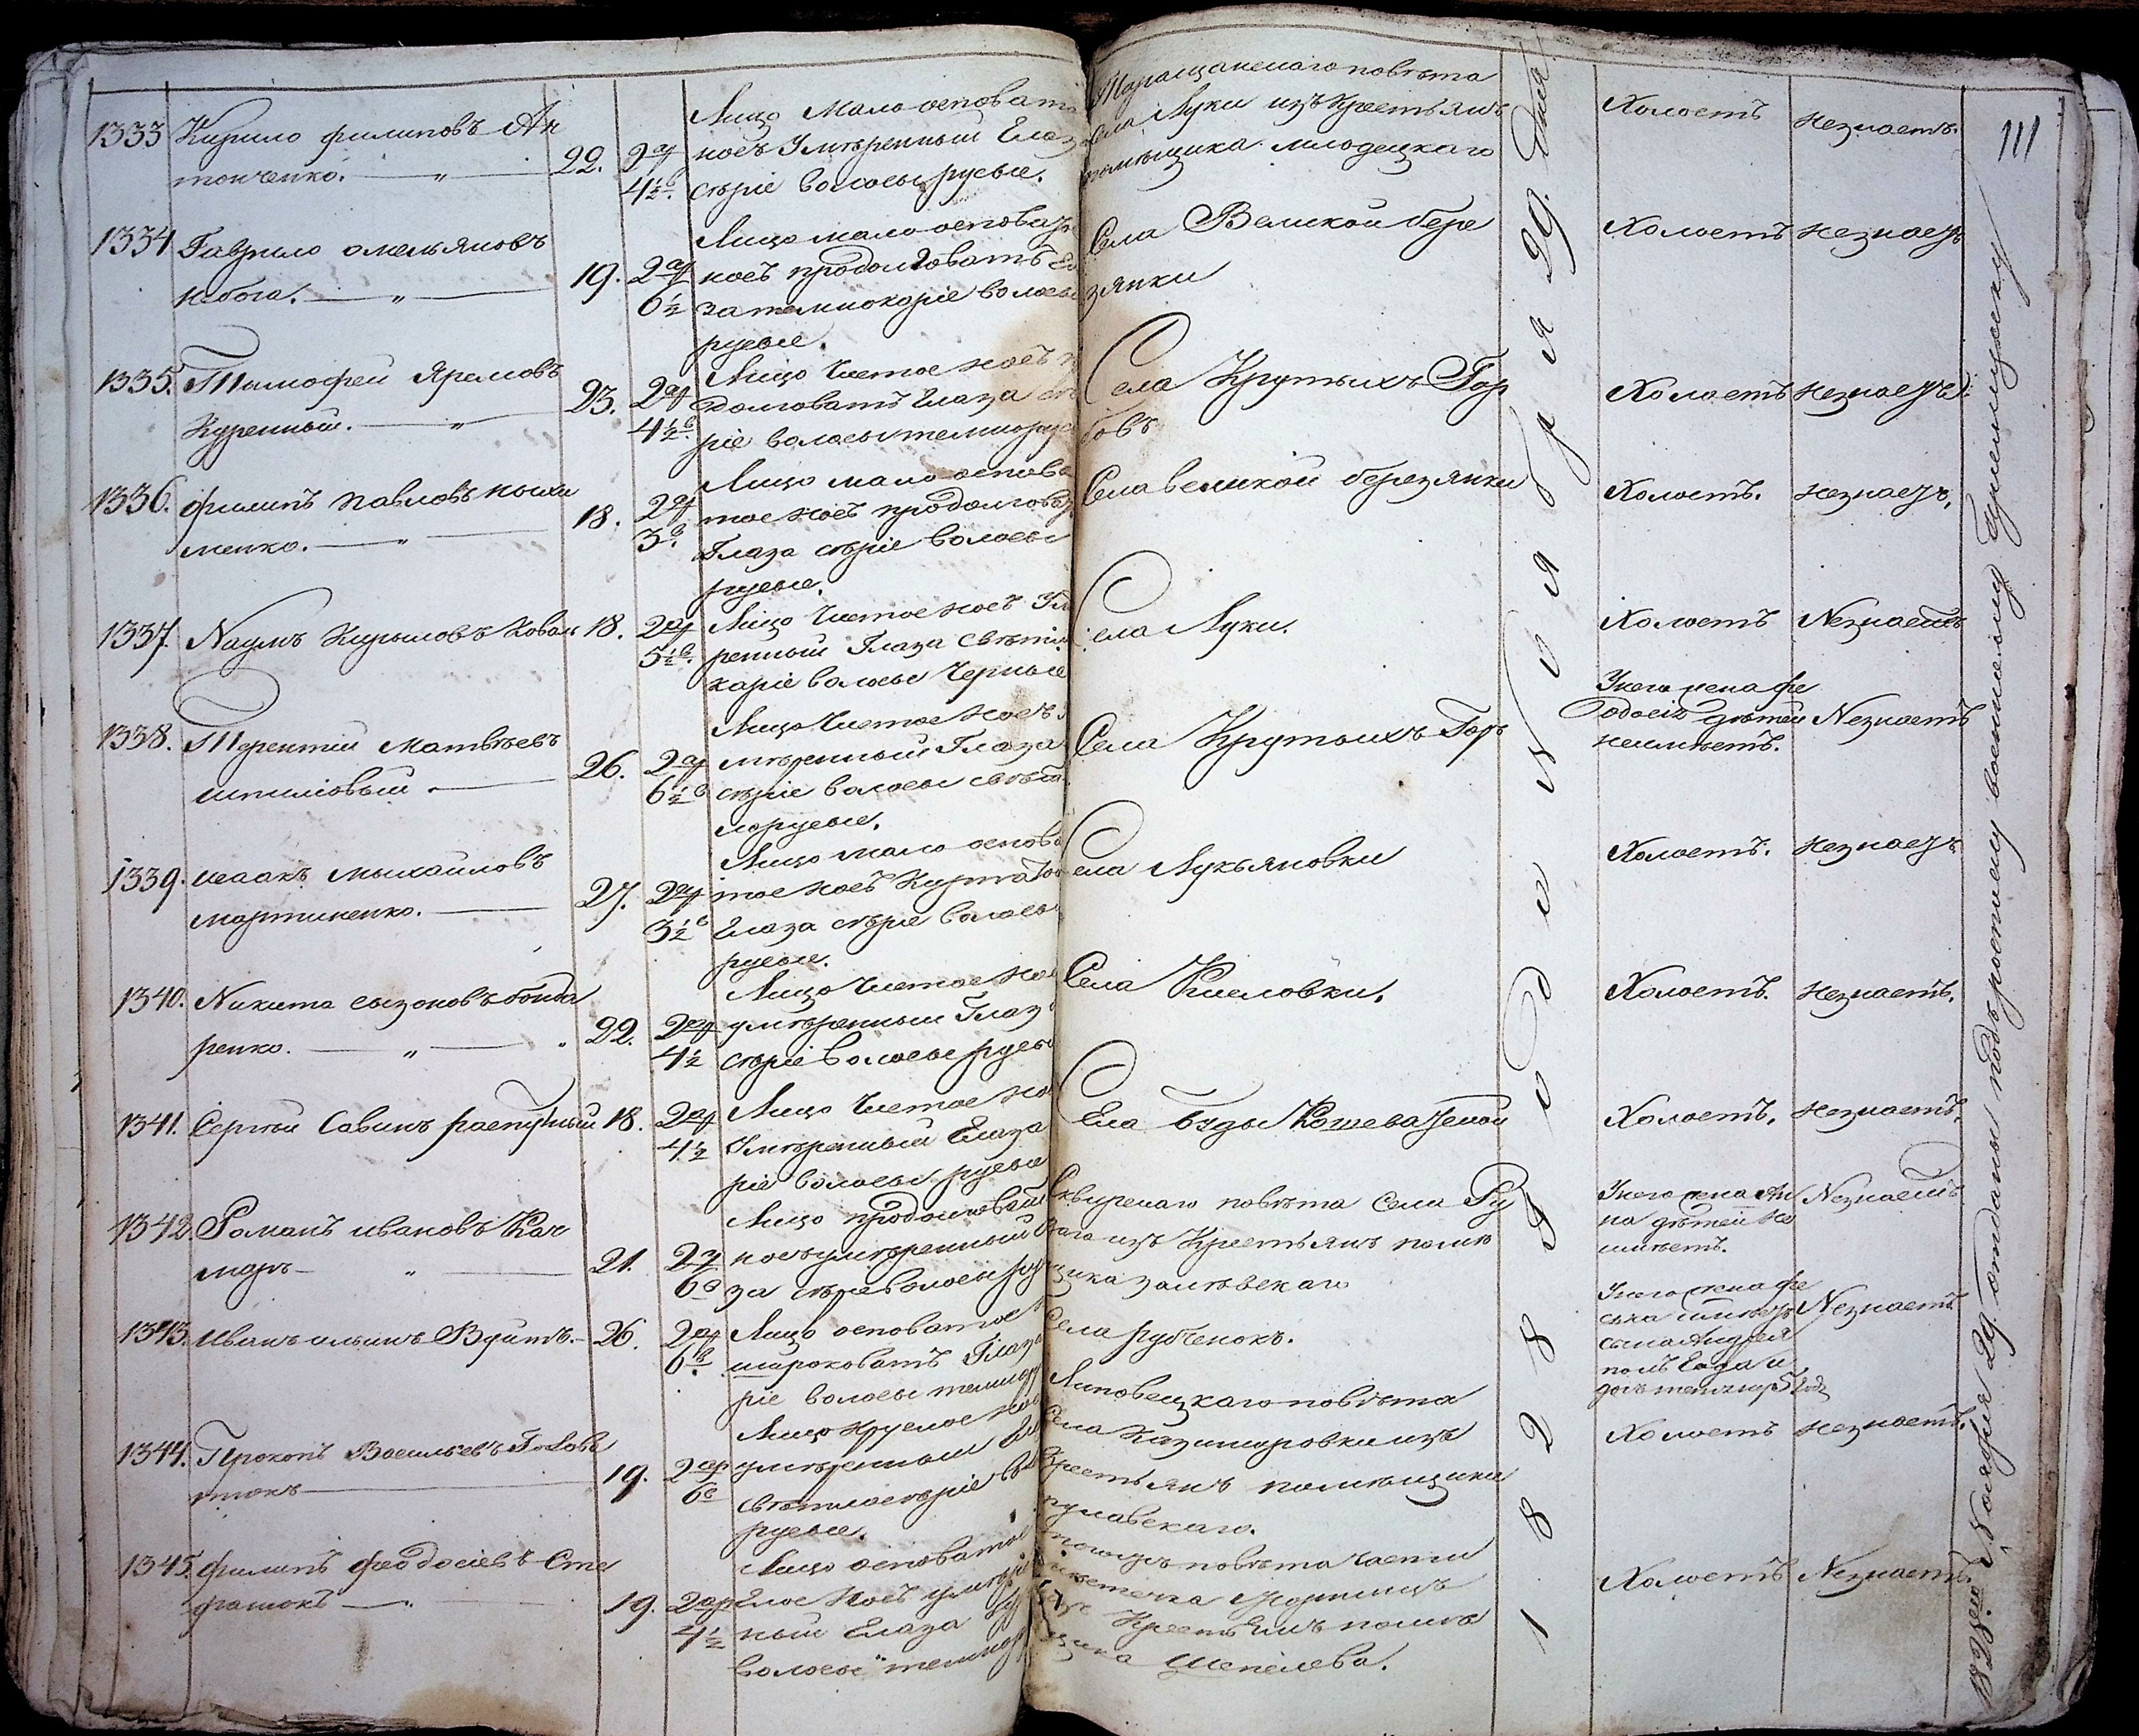 111
1333 Кирило филиповъ Ан
тонченко.
22.
2 а
4½ в.
Лицо Мало осповат
носъ Умѣренный Глаз
сѣріе волосы русые.
Таращанскаго повѣта
села Луки изъ Крестьянъ
помѣщика млодецкаго
Холостъ
незнаетъ.
1334 Гаврило омельяновъ
небога.
19.
2 а
6½
Лицо мало осповат
носъ продолговатъ Гла
за темнокаріе волосы
русые.
Села Великой бере
зянки
Холостъ
незнаетъ
1335. Тимофей Яремовъ
Куренный.
23.
2 а
4½ в.
Лицо Чистое носъ п
долговатъ Глаза сѣ
ріе волосы темнорус
Села Крутыхъ Гор
бовъ
Холостъ
незнаетъ.
1336. филипъ павловъ
менко.
18.
2 а
3 в.
Лицо мало оспова
тое носъ продолговат
Глаза сѣріе волосы
русые.
Села великой березянки
Холостъ.
незнаетъ.
1337. Nаумъ Кирыловъ Коваль
18.
2 а
5½ в.
Лицо Чистое носъ Умѣ
ренный Глаза свѣтло
каріе волосы Черные
Села Луки.
Холостъ
Nезнаетъ
1338. Терентій Матвѣевъ
шпилiовый
26.
2 а
6½ в
Лицо Чистое носъ у
мѣренный Глаза
сѣріе волосы свѣт
лорусые.
Села Крутыхъ Горъ
Унего жена фе
одосія дѣтей
неимѣетъ.
Nезнаетъ
1339. исаакъ мыхаиловъ
мартиненко.
27.
2 а
3½ в
Лицо мало оспова
тое носъ Курнатов
Глаза сѣріе волосы
русые.
Села Лукьяновки
Холостъ.
незнаетъ
1340. Nикита сызоновъ бонда
ренко.
22.
2 а
4½
Лицо Чистое но
умѣренный Глаз
сѣріе волосы русы
Села Кисловки.
Холостъ.
незнаетъ.
1341. Сергѣй Савинъ распутный
18.
2 а
4½
Лицо Чистое но
Умѣренный Глаза
ріе волосы русые
Села буды Кошеватской
Холостъ.
незнаетъ.
1342 Романъ ивановъ Ком
маръ
21.
2
6 в
Лицо продолговат
носъ умѣренный
за сѣріе волосы рус
Сквирскаго повѣта Села Ру
изъ Крестьянъ помѣ
щика залѣвскаго
Унего жена Ан
на дѣтей не
имѣетъ.
Nезнаетъ
1343. иванъ ильинъ
26.
2 а
6 в.
Лицо осповатое
широковатъ Глаза
ріе волосы темнору
Села рубченокъ.
Унего жена фе
ська имѣетъ
сына Андрея
полъ Года и
дочь
Nезнаетъ
1344. Прокопъ Васильевъ Голова
тюкъ
19.
2 ар
6 в
Лицо Круглое нос
умѣренный Гл
свѣтлосѣріе во
русые.
Липовецкаго повѣта
Села Казимировки изъ
Крестьянъ помѣщика
пулавскаго.
Холостъ
незнаетъ.
1345. филипъ феодосіевъ Сте
фанюкъ
19.
2 ар
4½
Лицо осповатое
лое Носъ умѣрен
ный Глаза
волосы темнор
тогожъ повѣта части
мѣстечка
изъ Крестьянъ помѣ
щика Шепелева.
Холостъ
Nезнаетъ.
1828 Года Nоября 29 дня
1828 Года Nоября 29 отданы подъ росписку военному